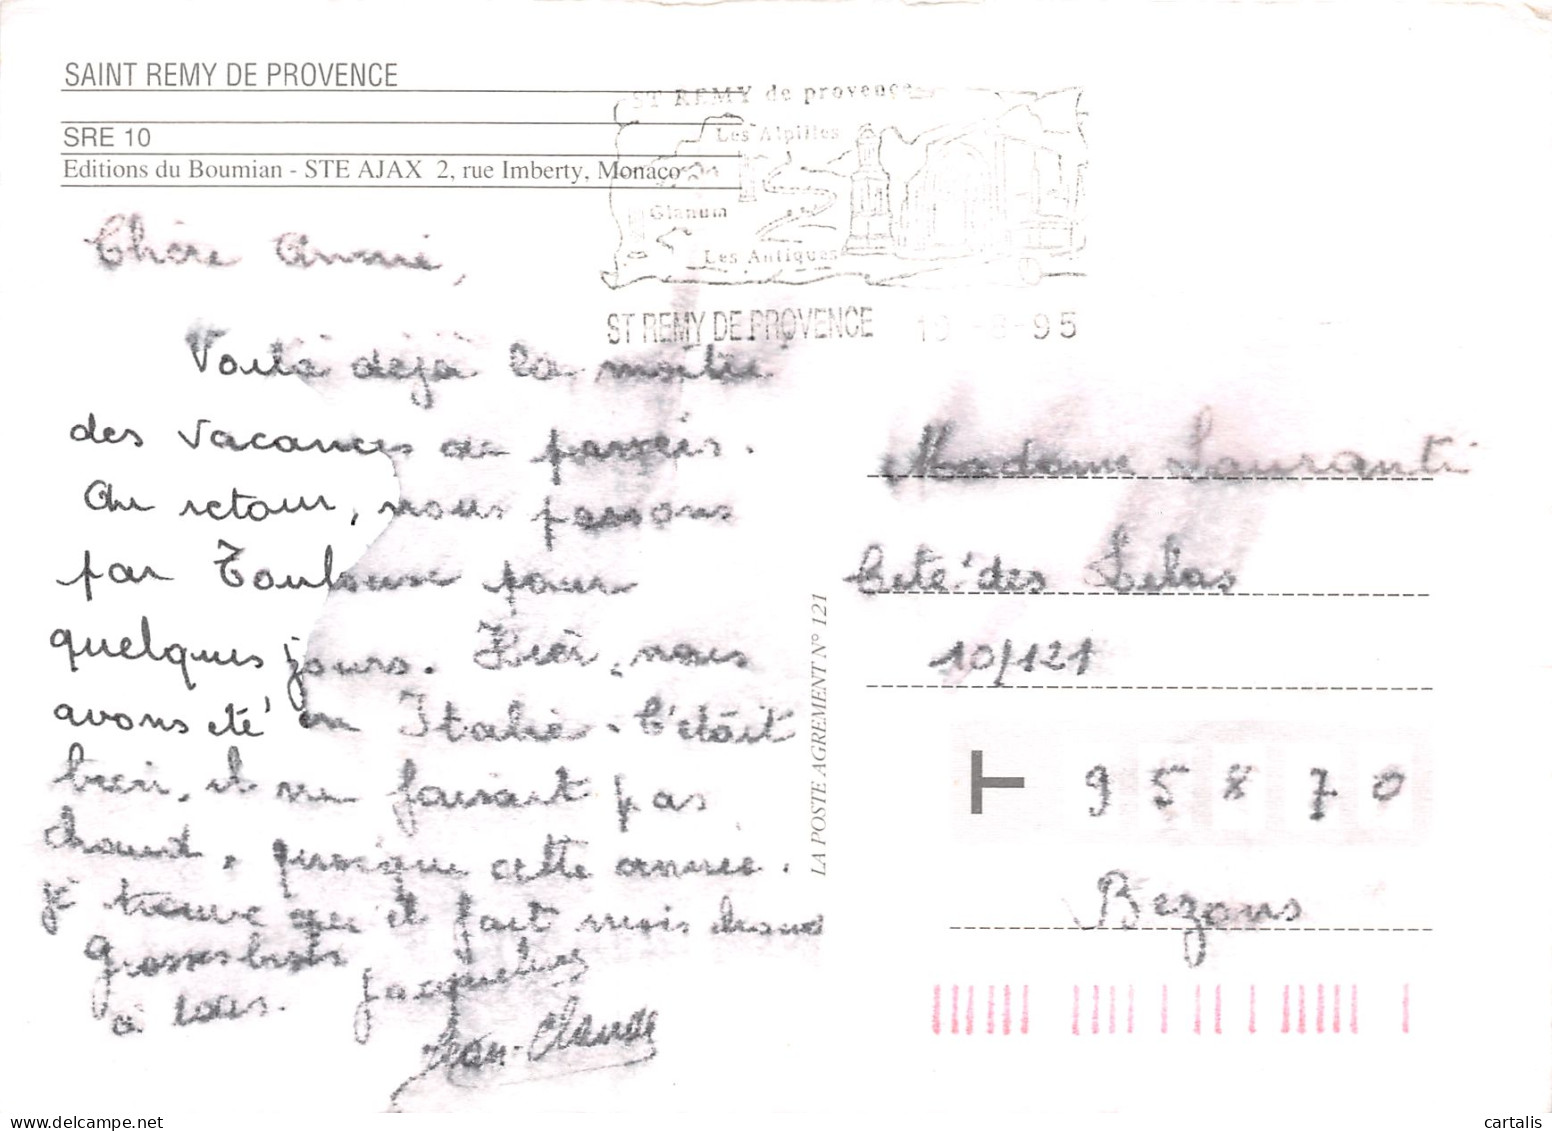 SAINT REMY DE PROVENCE
SRE 10
Editions du Boumian - STE AJAX 2, rue Imberty, Monaco
ST REMY de provence
Les Alpilles
Glanum
Les Antiques
ST REMY DE PROVENCE 95
Chère Annie,
Voilà déjà la moitié
des vacances de passées.
Au retour, nous passons
par Toulouse pour
quelques jours. Hier, nous
avons été en Italie. C'était
bien, il ne faisait pas
chaud, presque cette année.
je trouve qu'il fait mois chaud
grosses bises
à tous. Jacqueline
Jean-Claude
LA POSTE AGREMENT N° 121
Madame Lauranti
Cité des Lilas
10/121
T 95870
Bezons
cartalis